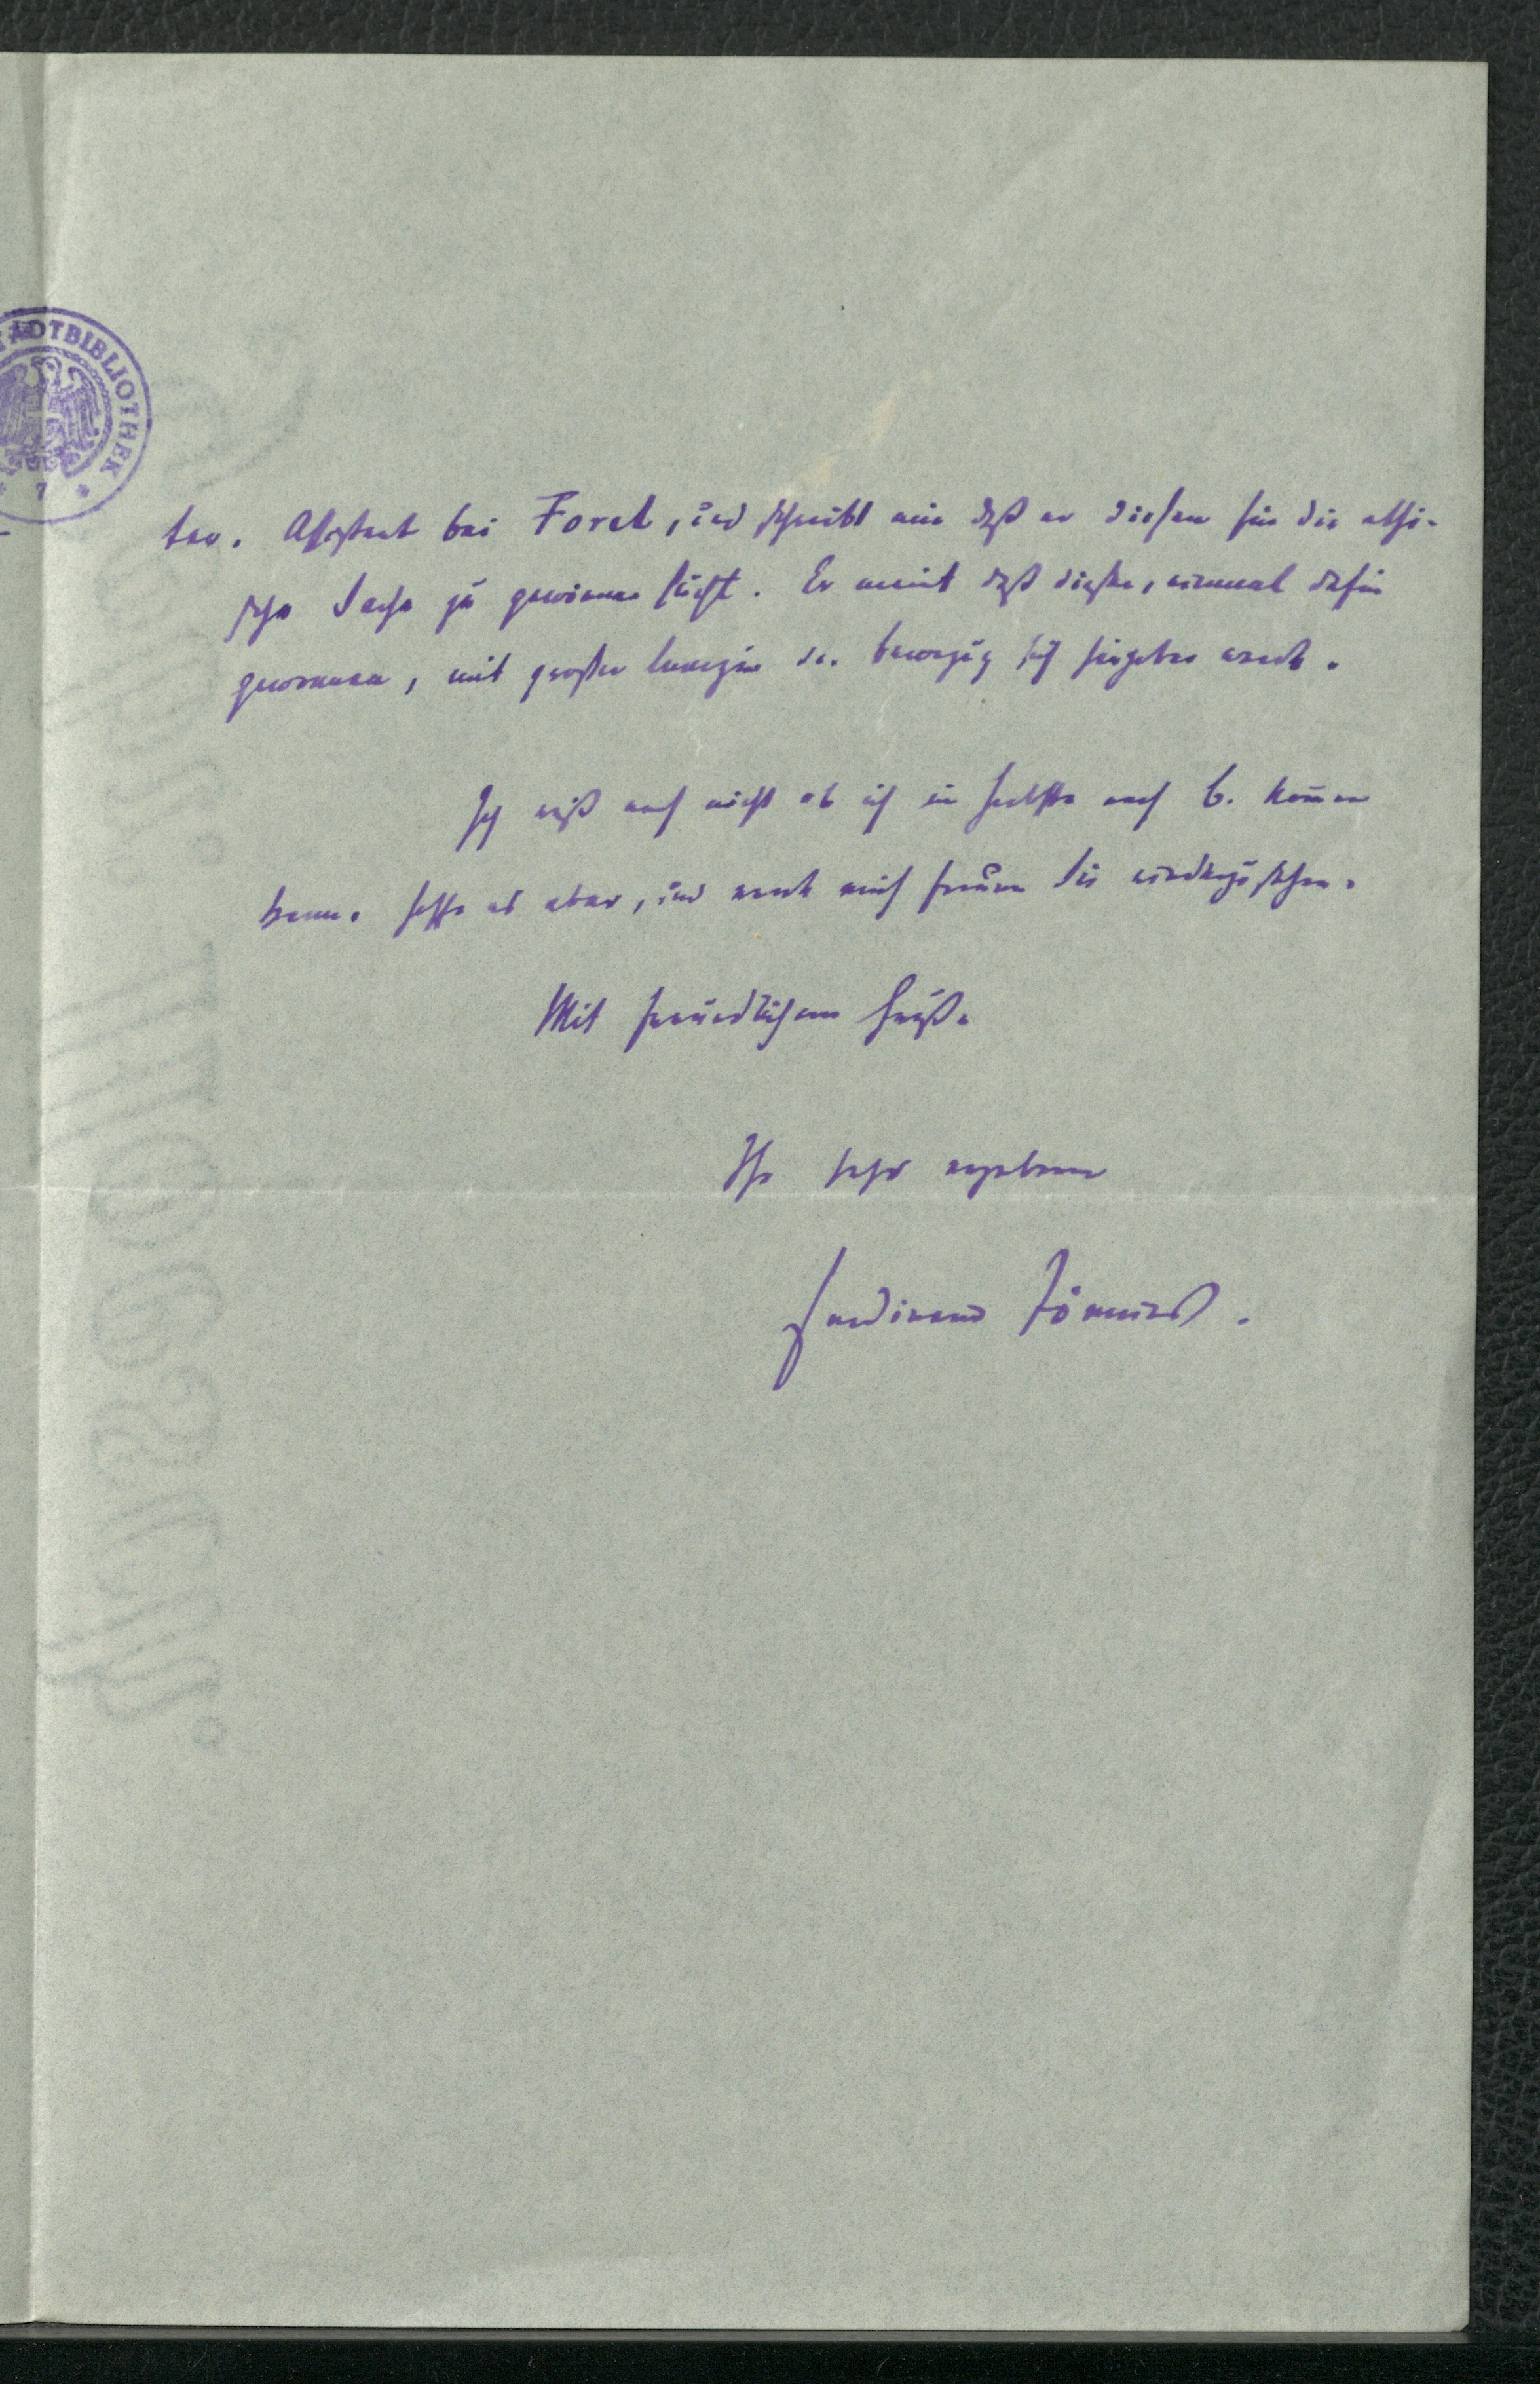 STADTBIBLIOTHEK
* 7 *
ter. Assistent bei Forel, und schreibt mir daß er diesen für die ethi-
sche Sache zu gewinnen sucht. Er meint daß dieser, einmal dafür
gewonnen, mit großer Energie der Bewegung sich hingeben werde.
Ich weiß noch nicht ob ich im Herbste nach B. komen
kann. Hoffe es aber, und werde mich freuen Sie wiederzusehen.
Mit freundlichem Gruße
Ihr sehr ergebener
Ferdinand Tönnies.